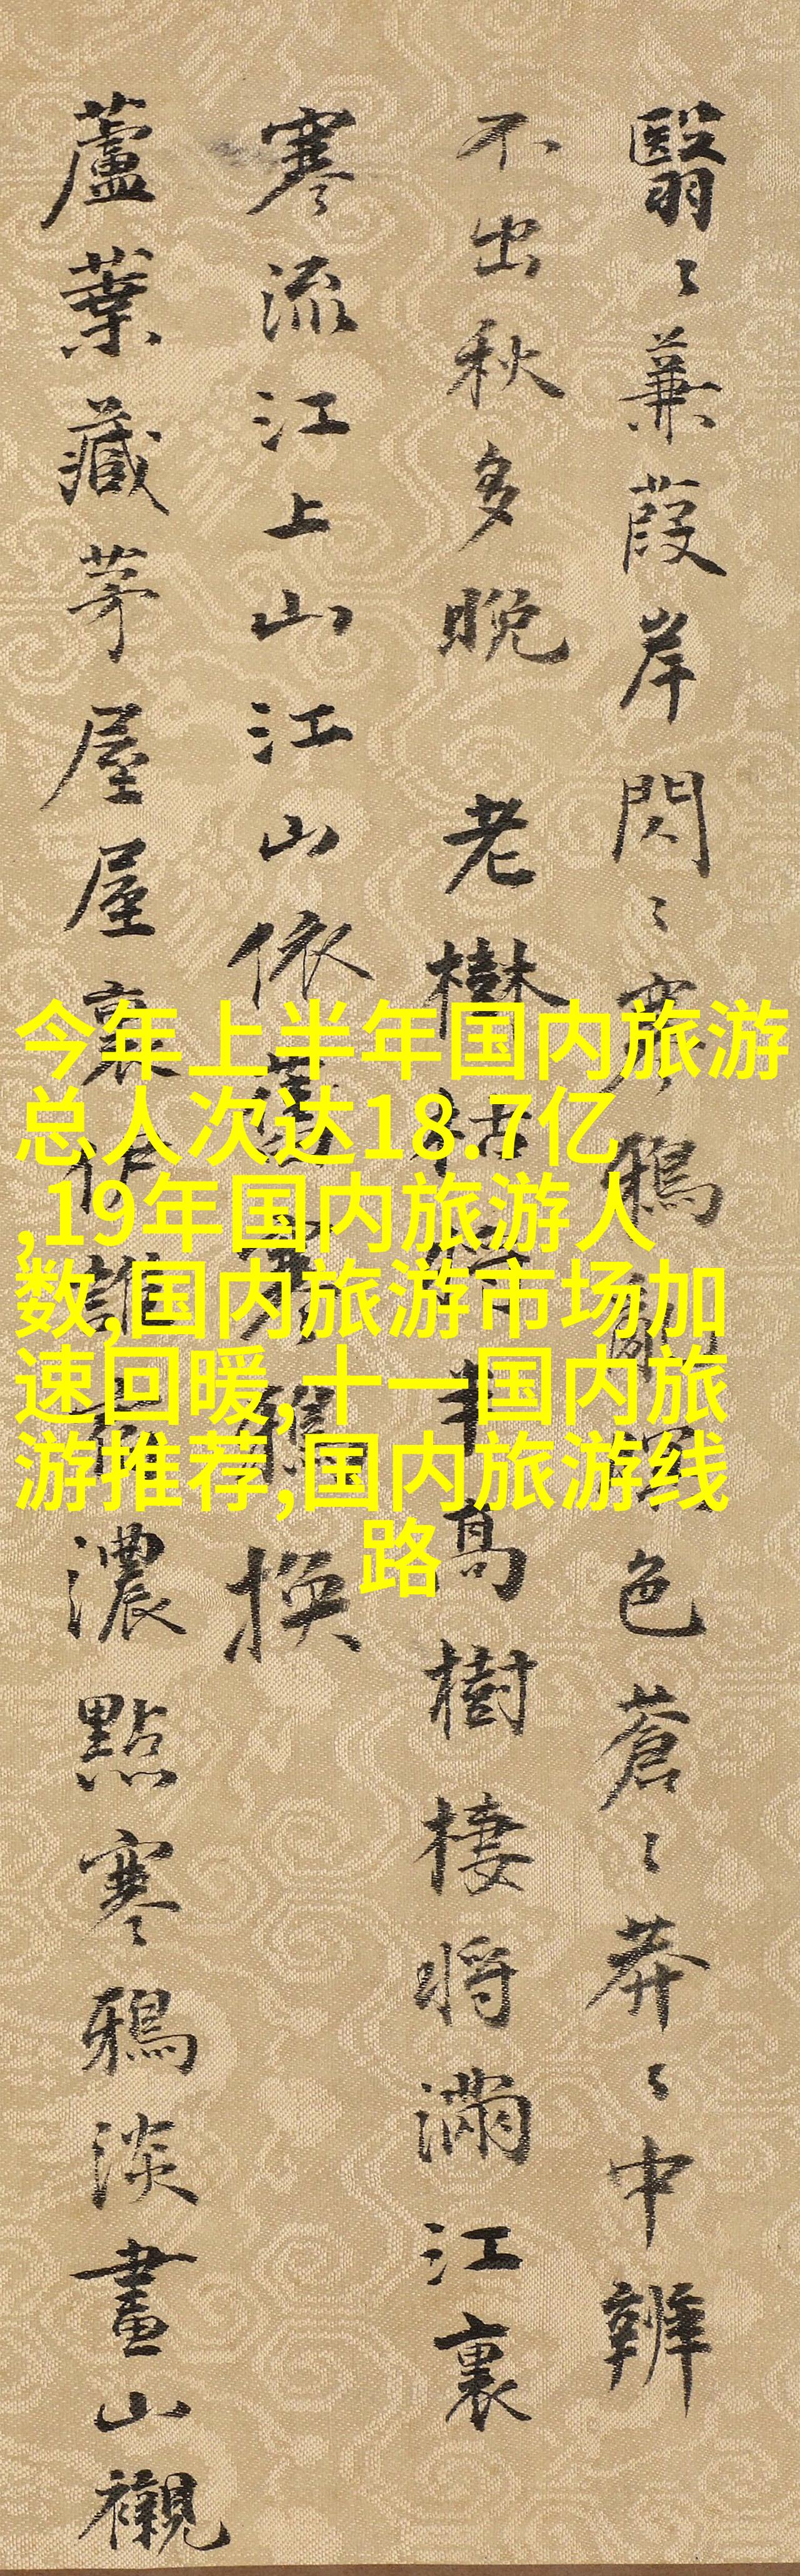 翳〻蒹葭岸閃〻鴉色蒼〻莽〻中辨
不出秋多晩 老樹枯半高樹棲将滿江裏
寒流江上山江山依舊換
蘆葉藏茅屋屋裏作誰家濃點寒鴉淡畫山襯
今年上半年国内旅游
总人次达18.7亿
,19年国内旅游人
数,国内旅游市场加
速回暖,十一国内旅
游推荐,国内旅游线
路